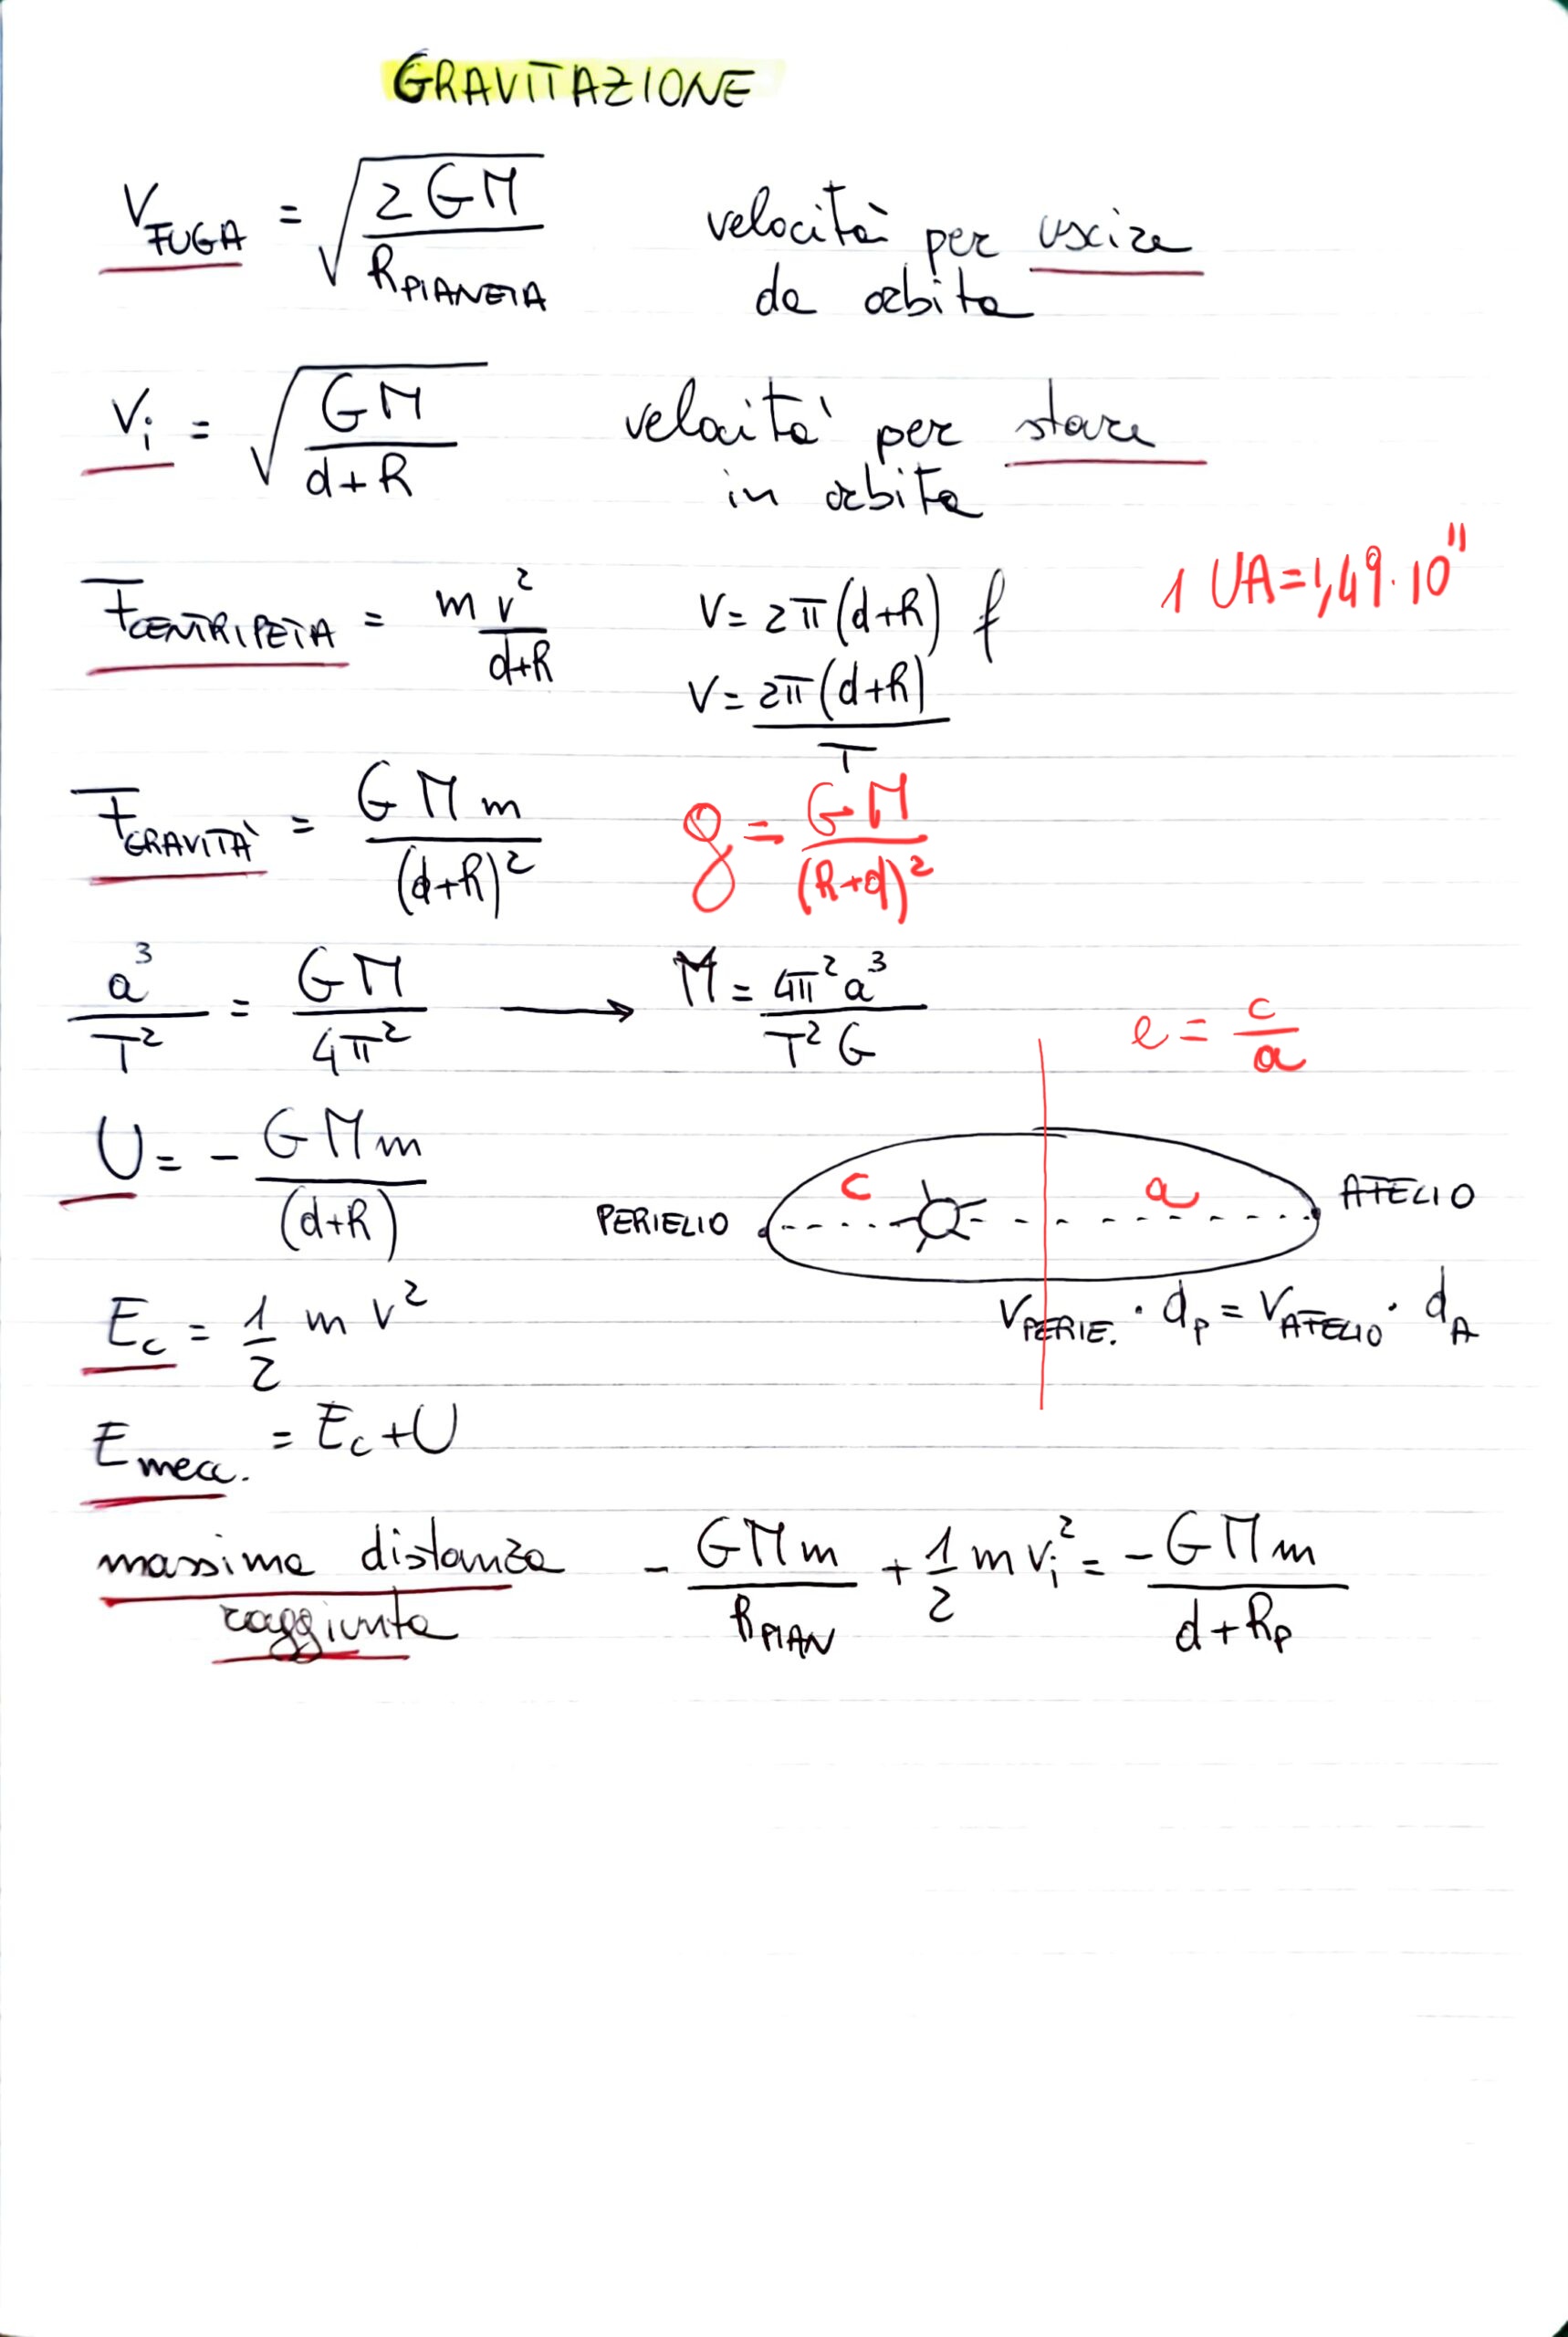 GRAVITAZIONE
V_FUGA = √(2GM / R_PIANETA) velocità per uscire
da orbita
V_i = √(GM / (d+R)) velocità per stare
in orbita
1 UA = 1,49 · 10^11
F_CENTRIPETA = m v² / (d+R) V = 2π(d+R) f
V = 2π(d+R) / T
F_GRAVITÀ = G M m / (d+R)² g = G M / (R+d)²
a³ / T² = GM / 4π² → M = 4π² a³ / T² G
e = c / a
U = - G M m / (d+R)
c a
PERIELIO ATELIO
V_PERIE. · d_P = V_ATELIO · d_A
E_c = 1/2 m v²
E_mecc. = E_c + U
massima distanza - G M m / R_PIAN + 1/2 m v_i² = - G M m / (d+R_P)
raggiunta